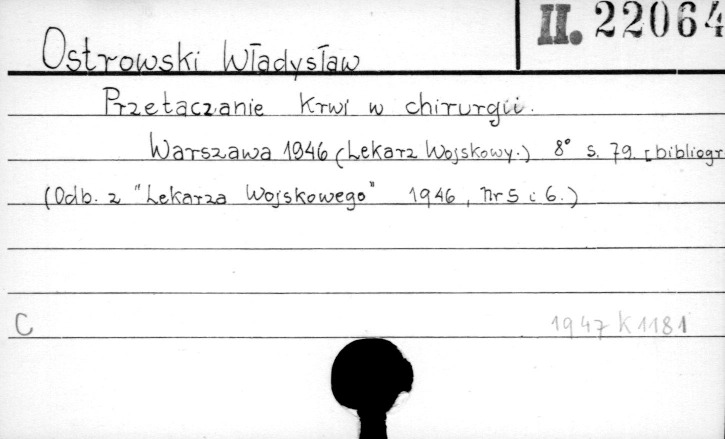 II. 22064
Ostrowski Władysław
Przetaczanie krwi w chirurgii.
Warszawa 1946 (Lekarz Wojskowy.) 8° s. 79. [bibliogr
(Odb. z "Lekarza Wojskowego" 1946, nr 5 i 6.)
C 1947 K 1181